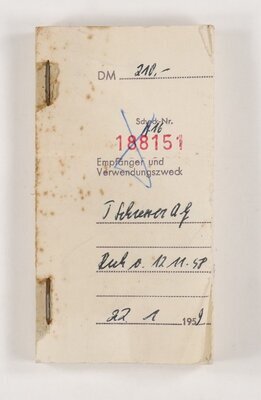 DM 210,-
Scheck-Nr.
188151
Empfänger und
Verwendungszweck
AG
12.11.58
22 1 1959